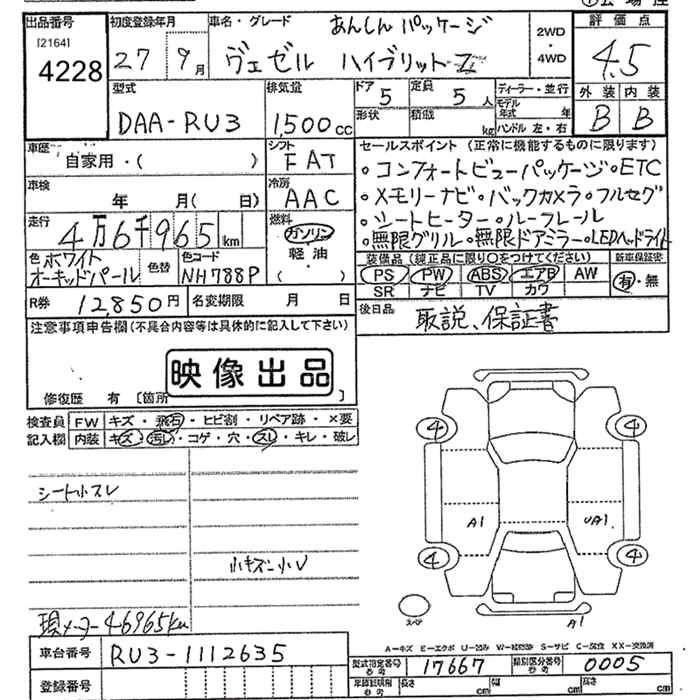 出品番号 初度登録年月 車名・グレード あんしんパッケージ 2WD・4WD 評価点
[2164]
4228 27年 9月 ヴェゼル ハイブリットZ 4.5
型式 排気量 ドア 5 定員 5人 ディーラー・並行 外装 内装
DAA-RU3 1,500cc 形状 積載 kg モデル年式 年 ハンドル 左・右 B B
車歴 自家用・( ) シフト FAT セールスポイント (正常に機能するものに限ります)
・コンフォートビューパッケージ・ETC
車検 年 月( 日) 冷房 AAC ・メモリーナビ・バックカメラ・フルセグ
走行 4万6千965km 燃料 ガソリン 軽油 ( ) ・シートヒーター・ルーフレール
・無限グリル・無限ドアミラー・LEDヘッドライト
色 ホワイトオーキッドパール 色替 色コード NH788P 装備品 (純正品に限り○をつけてください) 新車保証書
PS PW ABS エアB AW 有・無
SR ナビ TV カワ
R券 12,850円 名変期限 月 日 後日品 取説、保証書
注意事項申告欄(不具合内容等は具体的に記入して下さい)
映像出品
修復歴 有 [箇所 ]
検査員記入欄 FW キズ・飛石・ヒビ割・リペア跡・×要
内装 キズ・汚レ・コゲ・穴・スレ・キレ・破レ
4 4
シート小スレ
A1 UA1
小キズ小U
4 4
スペア A1
現メーター46965km
A－キズ E－エクボ U－凹み W－補修跡 S－サビ C－腐食 XX－交換済
車台番号 RU3-1112635 型式指定番号 参考 17667 類別区分番号 参考 0005
登録番号 長さ cm 幅 cm 高さ cm